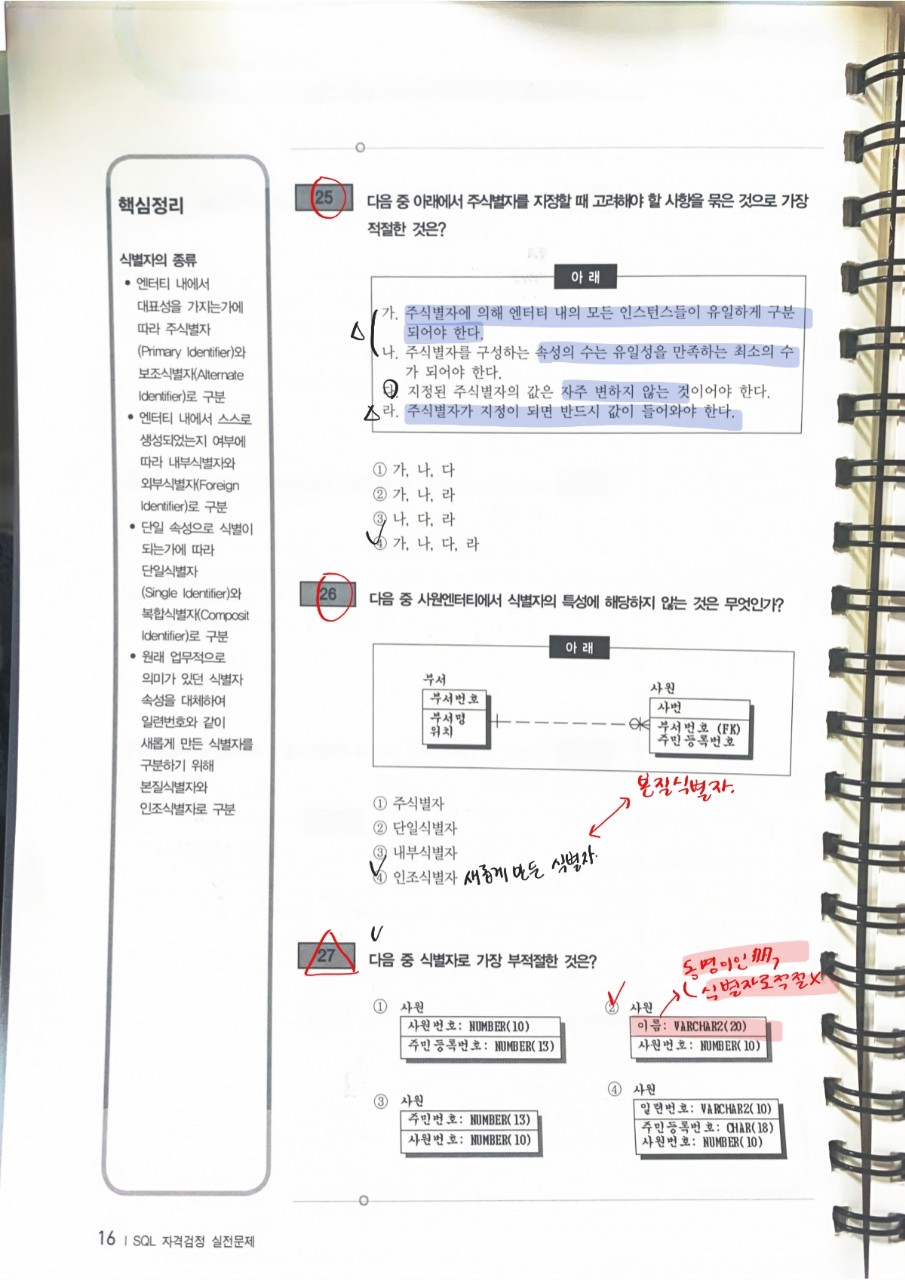 핵심정리
식별자의 종류
• 엔터티 내에서
대표성을 가지는가에
따라 주식별자
(Primary Identifier)와
보조식별자(Alternate
Identifier)로 구분
• 엔터티 내에서 스스로
생성되었는지 여부에
따라 내부식별자와
외부식별자(Foreign
Identifier)로 구분
• 단일 속성으로 식별이
되는가에 따라
단일식별자
(Single Identifier)와
복합식별자(Composit
Identifier)로 구분
• 원래 업무적으로
의미가 있던 식별자
속성을 대체하여
일련번호와 같이
새롭게 만든 식별자를
구분하기 위해
본질식별자와
인조식별자로 구분
25 다음 중 아래에서 주식별자를 지정할 때 고려해야 할 사항을 묶은 것으로 가장
적절한 것은?
아 래
가. 주식별자에 의해 엔터티 내의 모든 인스턴스들이 유일하게 구분
되어야 한다.
나. 주식별자를 구성하는 속성의 수는 유일성을 만족하는 최소의 수
가 되어야 한다.
다. 지정된 주식별자의 값은 자주 변하지 않는 것이어야 한다.
라. 주식별자가 지정이 되면 반드시 값이 들어와야 한다.
① 가, 나, 다
② 가, 나, 라
③ 나, 다, 라
④ 가, 나, 다, 라
26 다음 중 사원엔터티에서 식별자의 특성에 해당하지 않는 것은 무엇인가?
아 래
부서
부서번호
부서명
위치
사원
사번
부서번호 (FK)
주민등록번호
본질식별자.
① 주식별자
② 단일식별자
③ 내부식별자
④ 인조식별자 새롭게 만든 식별자.
27 다음 중 식별자로 가장 부적절한 것은?
동명이인
식별자로 적절X
① 사원
사원번호: NUMBER(10)
주민등록번호: NUMBER(13)
② 사원
이름: VARCHAR2(20)
사원번호: NUMBER(10)
③ 사원
주민번호: NUMBER(13)
사원번호: NUMBER(10)
④ 사원
일련번호: VARCHAR2(10)
주민등록번호: CHAR(18)
사원번호: NUMBER(10)
16 | SQL 자격검정 실전문제